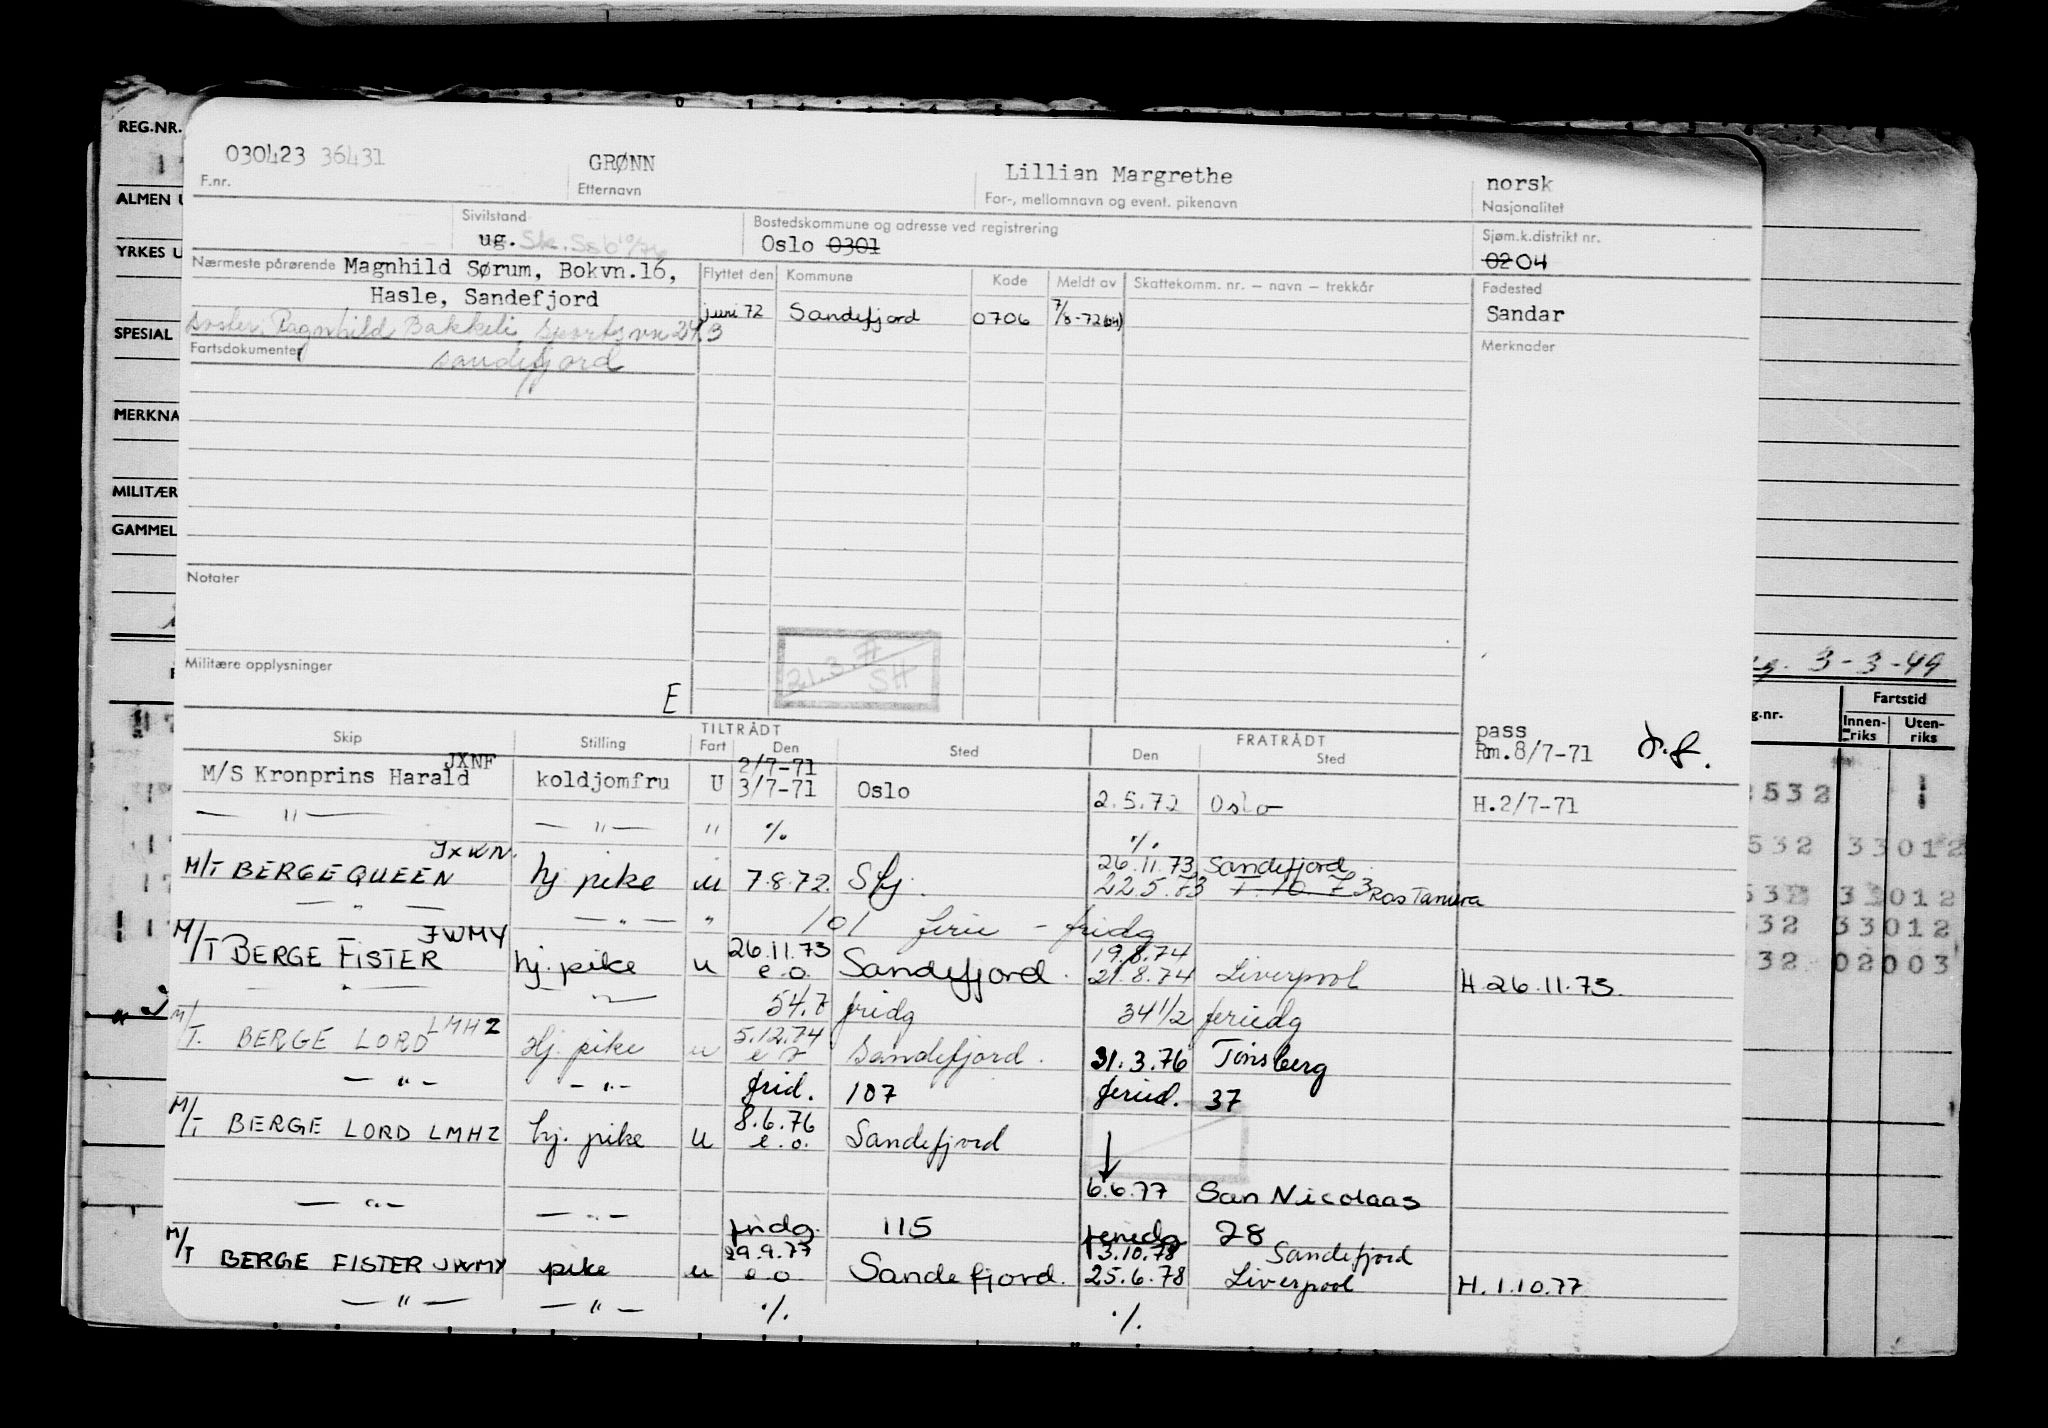 REG.NR.
030423 36431 GRØNN Lillian Margrethe norsk
F.nr. Etternavn For-, mellomnavn og event. pikenavn Nasjonalitet
ALMEN U
Sivilstand Bostedskommune og adresse ved registrering Sjøm.k.distrikt nr.
ug. Oslo 0301 02 04
YRKES U
Nærmeste pårørende Magnhild Sørum, Bokvn.16, Flyttet den Kommune Kode Meldt av Skattekomm. nr. – navn – trekkår Fødested
Hasle, Sandefjord juni 72 Sandefjord 0706 7/8-72 Sandar
SPESIAL
søster, Ragnhild Bakkeli, Sportsvn 24 B
Fartsdokumenter Sandefjord Merknader
MERKNA
MILITÆR
GAMMEL
Notater
Militære opplysninger
21.3.71 SH
E
3-3-49
Fartstid
g.nr. Innen-riks Uten-riks
TILTRÅDT FRATRÅDT pass
Skip Stilling Fart Den Sted Den Sted Pm.8/7-71
M/S Kronprins Harald JXNF koldjomfru U 2/7-71 3/7-71 Oslo 2.5.72 Oslo H.2/7-71
— " — — " — " % %
M/T BERGE QUEEN JXKN. hj pike u 7.8.72. Sfj. 26.11.73 Sandefjord 22.5.73 1.10.73 Ras Tanura
— " — — " — " 101 ferie - fridg
M/T BERGE FISTER JWMY hj. pike u 26.11.73 e.o. Sandefjord. 19.8.74 21.8.74 Liverpool H 26.11.73.
— " — — " — 54.7 fridg 34 1/2 feriedg
M/T. BERGE LORD LMHZ Hj. pike u 5.12.74 Sandefjord. 31.3.76 Tønsberg
— " — — " — frid. 107 feried. 37
M/T BERGE LORD LMHZ hj. pike u 8.6.76 e.o. Sandefjord
6.6.77 San Nicolaas
— " — — " — fridg. 115 feriedg 28
M/T BERGE FISTER JWMY pike u 29.9.77 e.o. Sandefjord. 13.10.78 Sandefjord 25.6.78 Liverpool H.1.10.77
— " — — " — % %
2532 1
532 33012
532 33012
32 33012
32 02003